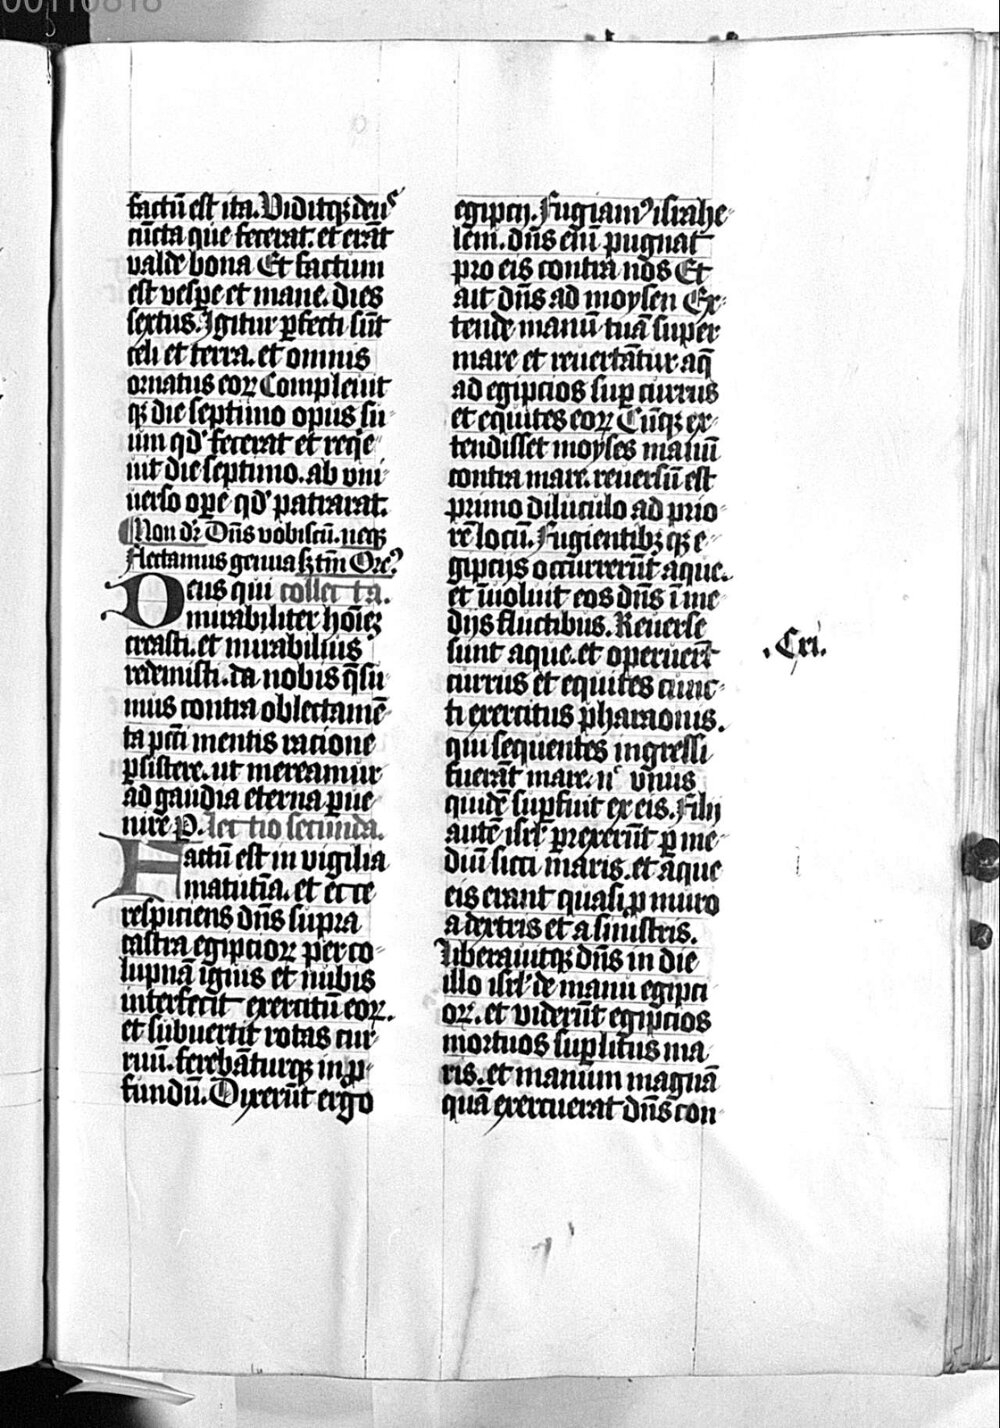 factū est ita. Viditqꝫ deus
cūcta que fecerat. et erāt
valde bona Et factum
est vespe et mane. dies
sextus. Igitur ꝑfecti sūt
celi et terra. et omnis
ornatus eoꝝ Compleuit
qꝫ die septimo opus su
um qd' fecerat et req̄e
uit die septimo. ab vni
uerso oꝑe qd' patrarat.
Non dr̄ Dn̄s vobiscū. neqꝫ
flectamus genua sꝫ tm̄ Orem9
Deus qui collecta.
mirabiliter hoīeꝫ
creasti. et mirabilius
redemisti. da nobis q̄su
mus contra oblectamē
ta pcc̄i mentis racione
ꝑsistere. ut mereamur
ad gaudia eterna ꝑue
nire P. lectio secunda.
Factū est in vigilia
matutīa. et ecce
respiciens dn̄s supra
castra egipcioꝝ per co
lupnā ignis et nubis
interfecit exercitū eoꝝ.
et subuertit rotas cur
ruū. ferebāturqꝫ in ꝓ
fundū. Dixerūt ergo
egipcij. Fugiam9 israhe
lem. dn̄s eni pugnat
pro eis contra nos Et
ait dn̄s ad moysen Ex
tende manū tuā super
mare et reuertātur aq̄
ad egipcios suꝑ currus
et equites eoꝝ Cūqꝫ ex
tendisset moyses manū
contra mare. reuersū est
primo diluculo ad prio
rē locū. Fugientibꝫ qꝫ e
gipcijs occurrerūt aque.
et īuoluit eos dn̄s ī me
dijs fluctibus. Reuerse
sunt aque. et operuerūt
currus et equites cunc
ti exercitus pharaonis.
qui sequentes ingressi
fuerāt mare. nc̄ vnus
quidē suꝑfuit ex eis. Filij
autē isrl' ꝑrexerūt ꝑ me
diū sicci maris. et aque
eis erant quasi ꝓ muro
a dextris et a sinistris.
Liberauitqꝫ dn̄s in die
illo isrl' de manu egipci
oꝝ. et viderūt egipcios
mortuos suꝑ litus ma
ris. et manum magnā
quā exercuerat dn̄s con
.Cri.